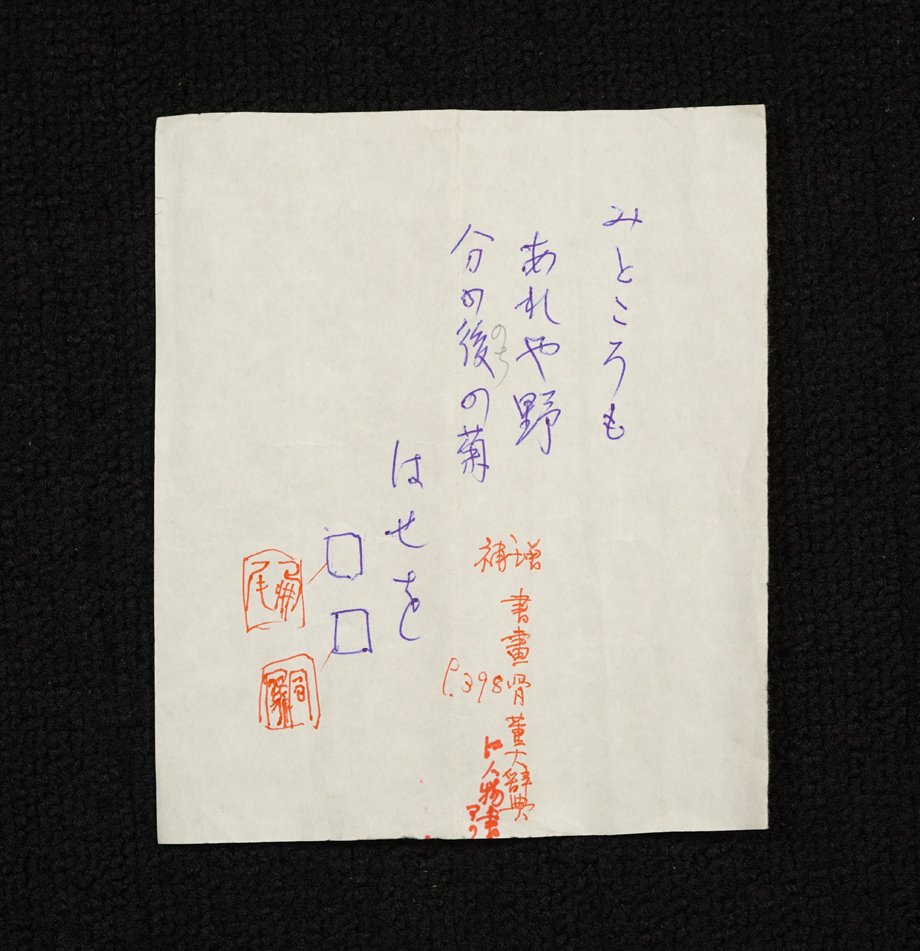 みところも
あれや野
分の後の菊
のち
はせを
増補
書畫骨董大辞典
P.398
人物書